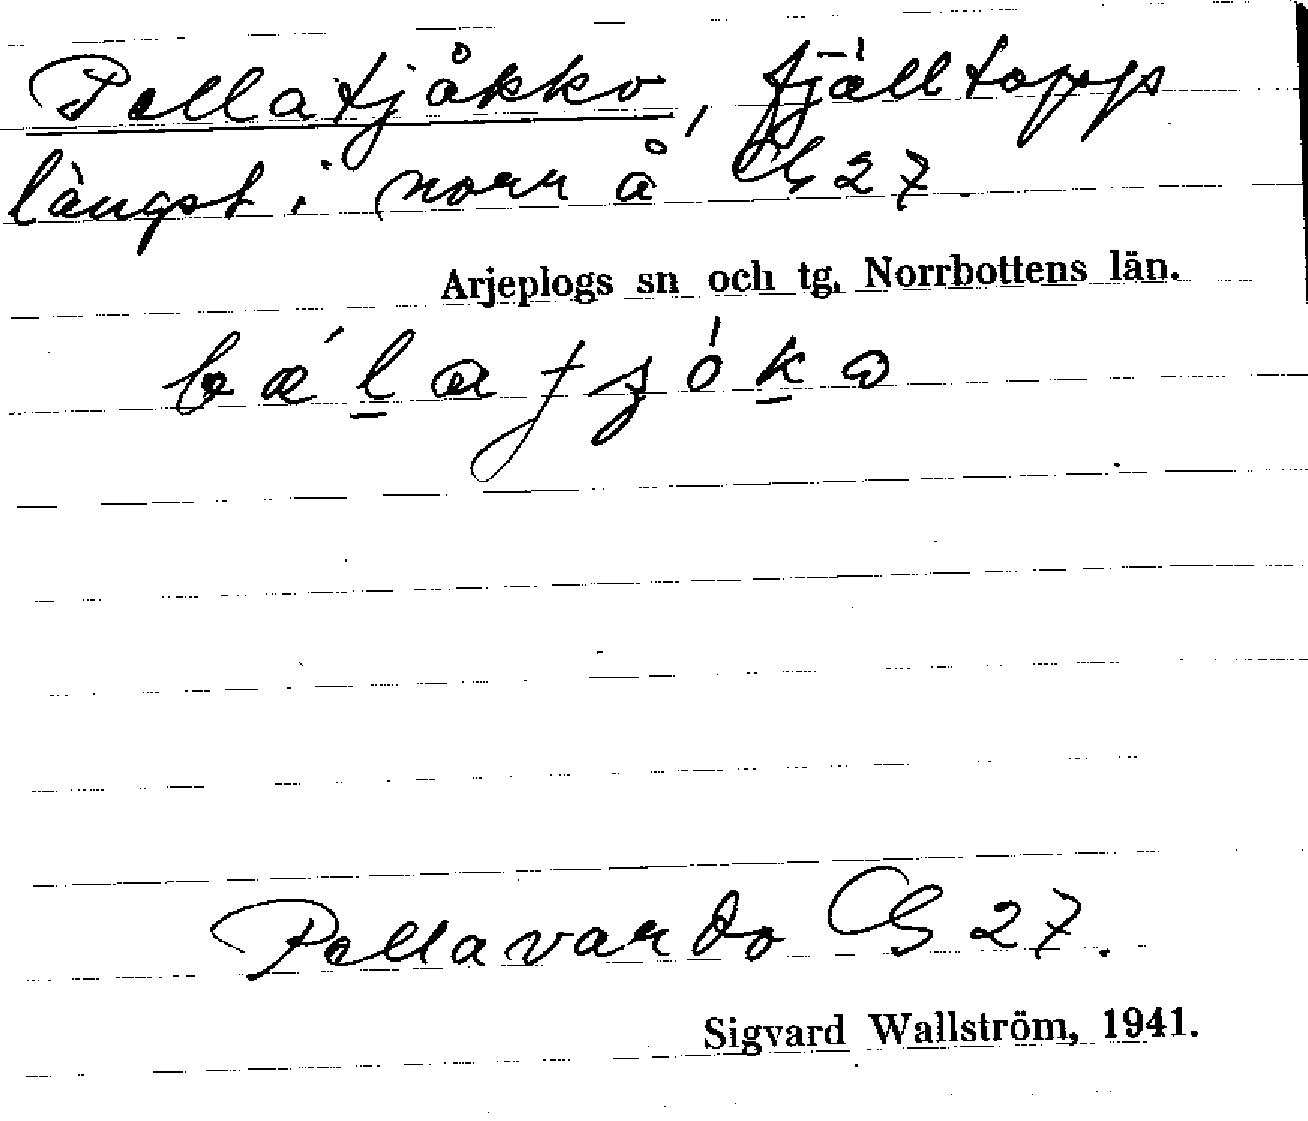 Pellatjåkko, fjälltopp
längst i norr å Gb 27.
Arjeplogs sn och tg. Norrbottens län.
Pellavardo Gb 27.
Sigvard Wallström, 1941.